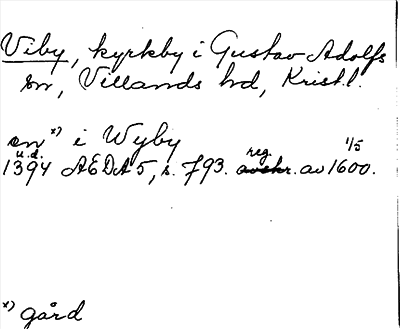 Viby, kyrkby i Gustav Adolfs
sn, Villands hd, Krist.l.
en x) i Wyby
u.d. reg 1/5
1394 AEDA 5, s. 793. avskr. av 1600.
x) gård